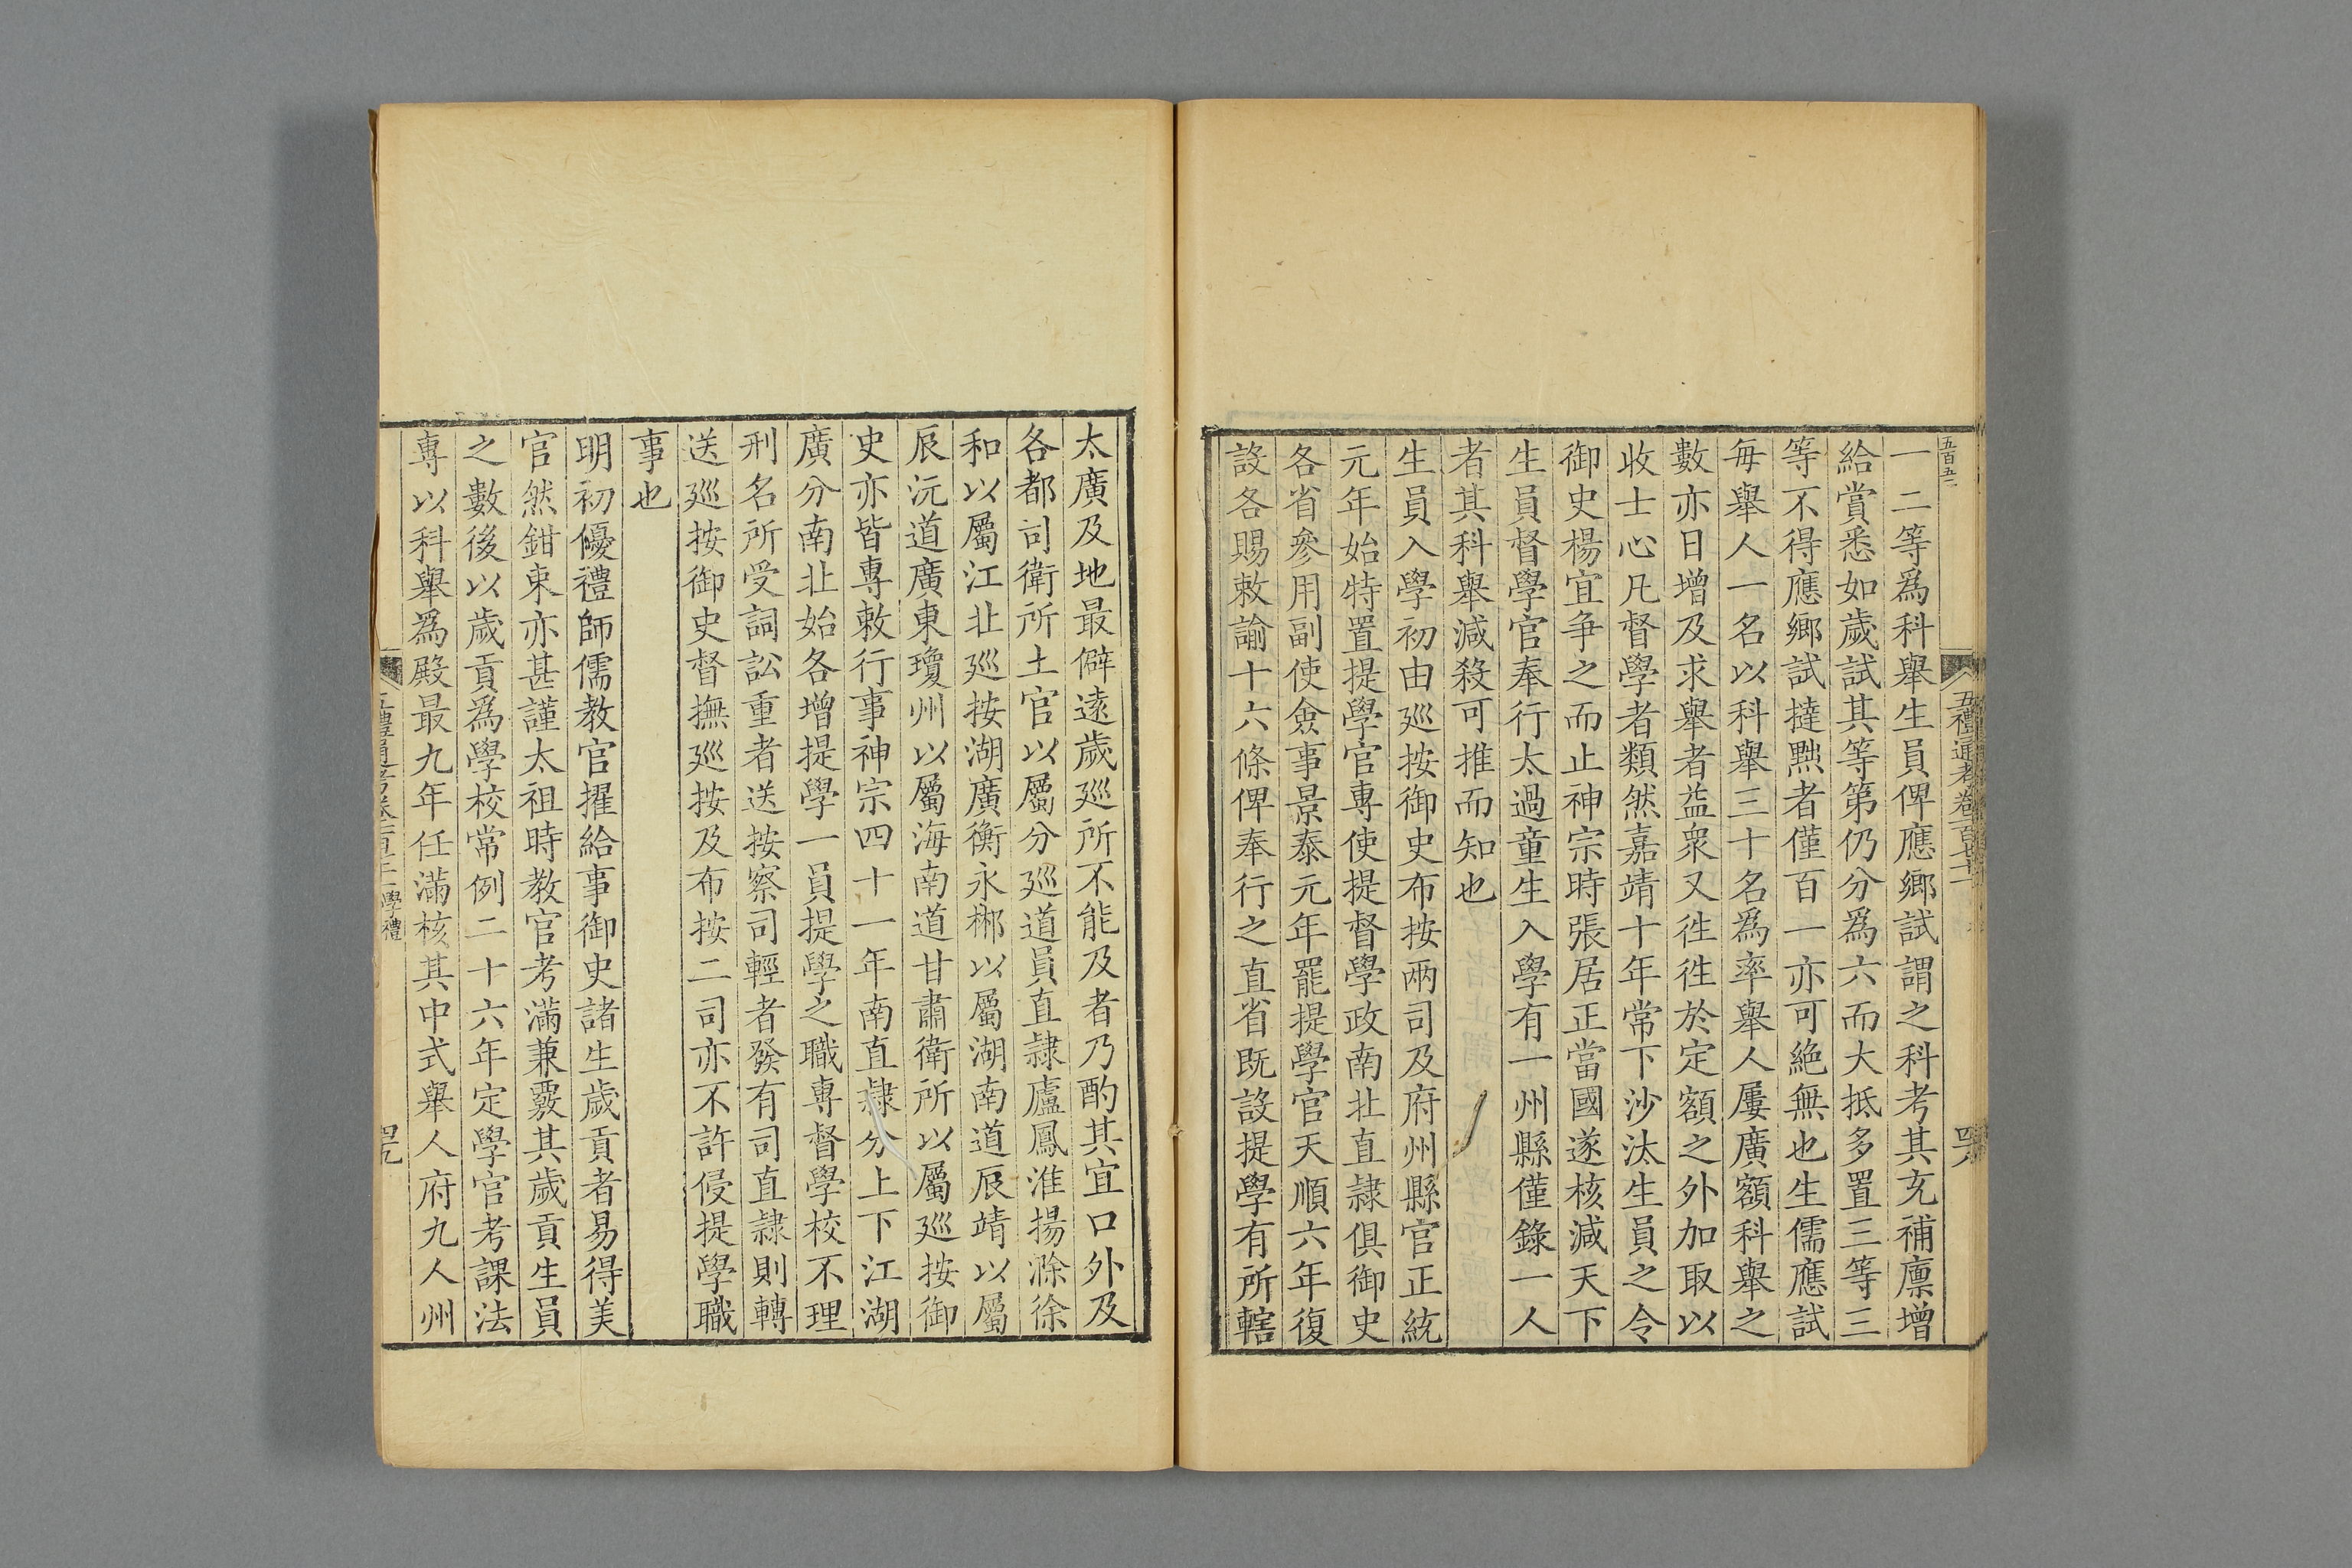 五禮通考卷一百七十二
一二等爲科舉生員俾應鄉試謂之科考其充補廩增
給賞悉如歲試其等第仍分爲六而大抵多置三等三
等不得應鄉試撻黜者僅百一亦可絶無也生儒應試
每舉人一名以科舉三十名爲率舉人屢廣額科舉之
數亦日增及求舉者益衆又徃徃於定額之外加取以
收士心凡督學者類然嘉靖十年常下沙汰生員之令
御史楊宜爭之而止神宗時張居正當國遂核減天下
生員督學官奉行太過童生入學有一州縣僅錄一人
者其科舉減殺可推而知也
生員入學初由廵按御史布按兩司及府州縣官正統
元年始特置提學官專使提督學政南北直隷俱御史
各省參用副使僉事景泰元年罷提學官天順六年復
設各賜敕諭十六條俾奉行之直省既設提學有所轄
太廣及地最僻遠歲廵所不能及者乃酌其宜口外及
各都司衛所土官以屬分廵道員直隷廬鳳淮揚滁徐
和以屬江北廵按湖廣衡永郴以屬湖南道辰靖以屬
辰沅道廣東瓊州以屬海南道甘肅衛所以屬廵按御
史亦皆專敕行事神宗四十一年南直隷分上下江湖
廣分南北始各增提學一員提學之職專督學校不理
刑名所受詞訟重者送按察司輕者發有司直隷則轉
送廵按御史督撫廵按及布按二司亦不許侵提學職
事也
明初優禮師儒教官擢給事御史諸生歲貢者易得美
官然鉗束亦甚謹太祖時教官考滿兼覈其歲貢生員
之數後以歲貢爲學校常例二十六年定學官考課法
專以科舉爲殿最九年任滿核其中式舉人府九人州
學禮